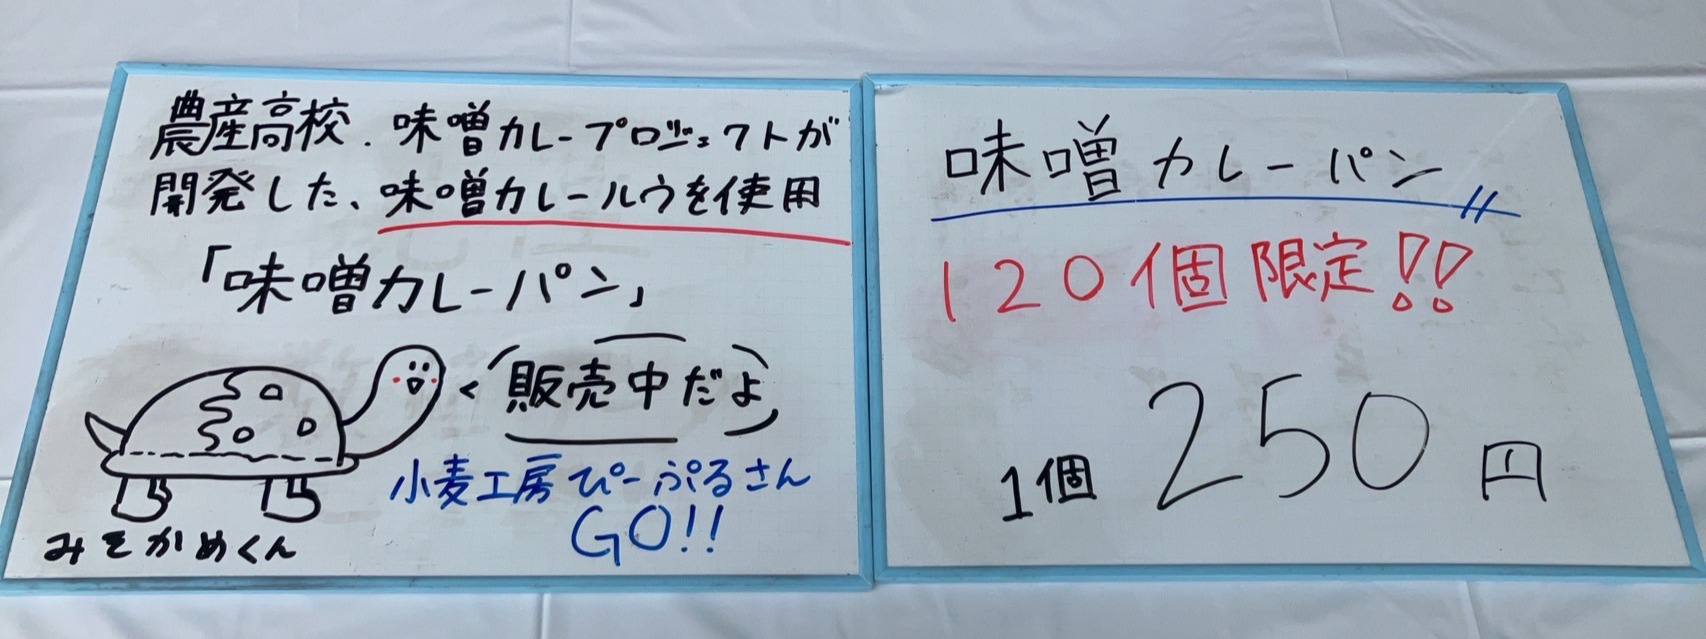 農産高校.味噌カレープロジェクトが
開発した、味噌カレールウを使用
「味噌カレーパン」
< 販売中だよ
小麦工房ぴーぷるさん
GO!!
みそかめくん
味噌カレーパン
120個限定!!
1個 250円